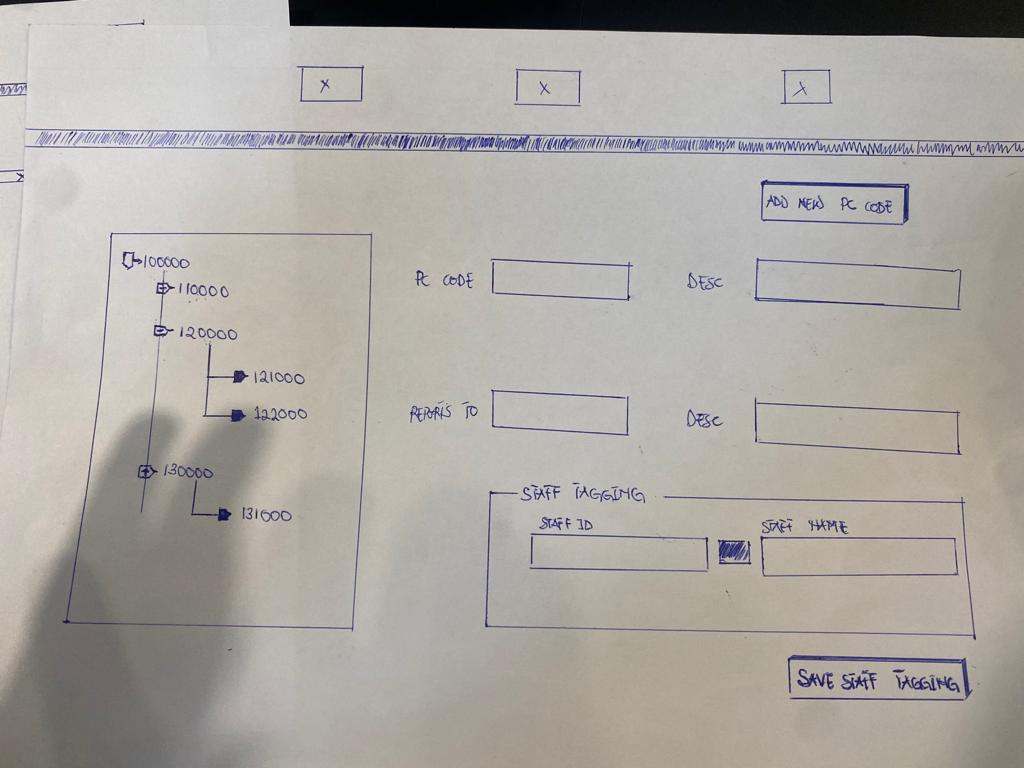 X X X
ADD NEW PC CODE
100000
110000
120000
121000
122000
130000
131000
PC CODE DESC
REPORTS TO DESC
STAFF TAGGING
STAFF ID STAFF NAME
SAVE STAFF TAGGING